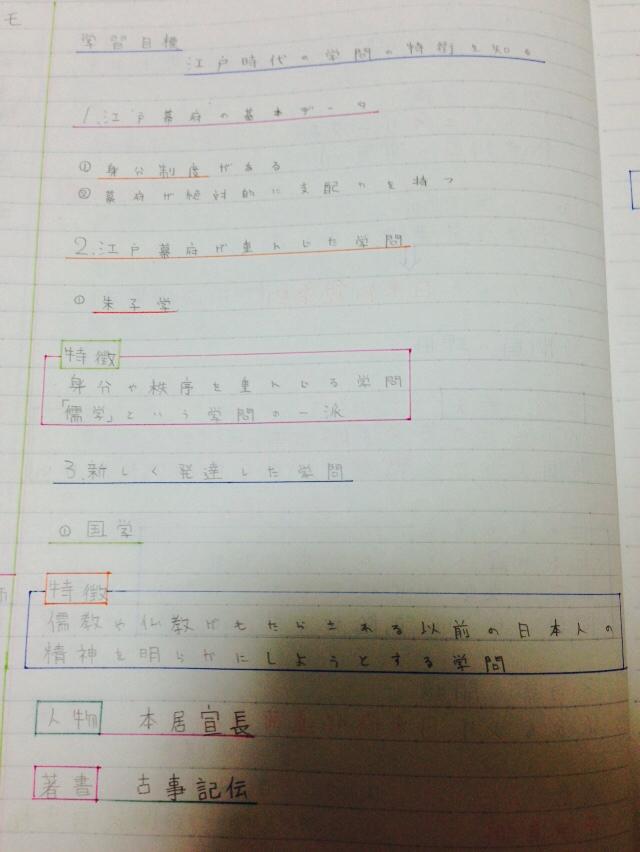 モ
学習目標
江戸時代の学問の特徴を知る
1.江戸幕府の基本データ
① 身分制度がある
② 幕府が絶対的に支配力を持つ
2.江戸幕府が重んじた学問
① 朱子学
特徴
身分や秩序を重んじる学問
「儒学」という学問の一派
3.新しく発達した学問
① 国学
特徴
儒教や仏教がもたらされる以前の日本人の
精神を明らかにしようとする学問
人物 本居宣長
著書 古事記伝